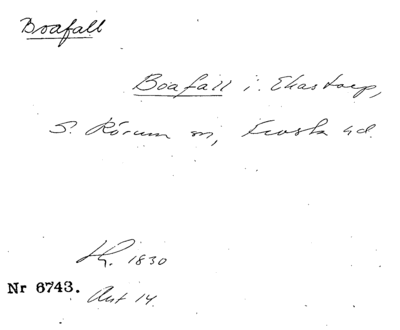 Boafall
Boafall i Ekastorp,
S. Rörum sn, Frosta hd.
1830
Nr 6743. Akt 14.